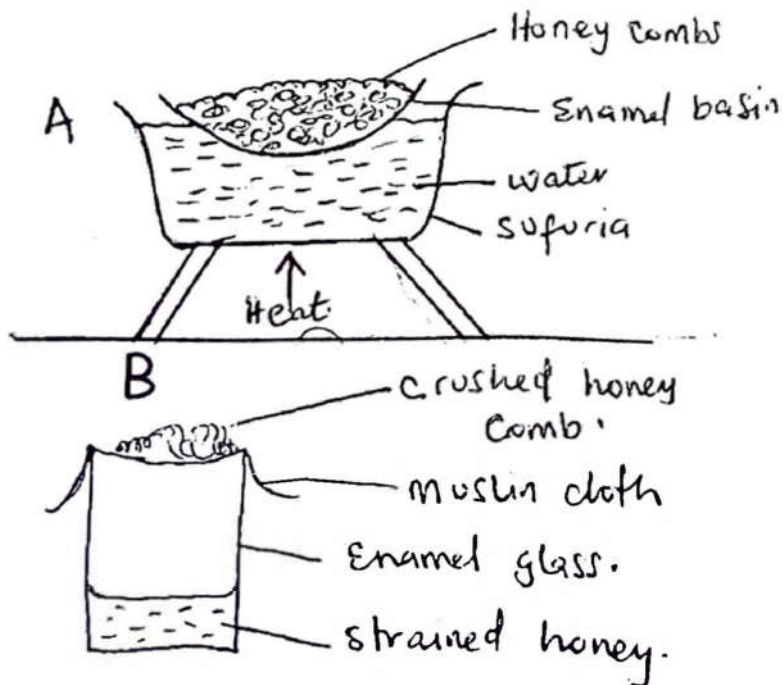 Honey combs
A
Enamel basin
water
sufuria
Heat.
B
crushed honey
comb.
muslin cloth
Enamel glass.
strained honey.